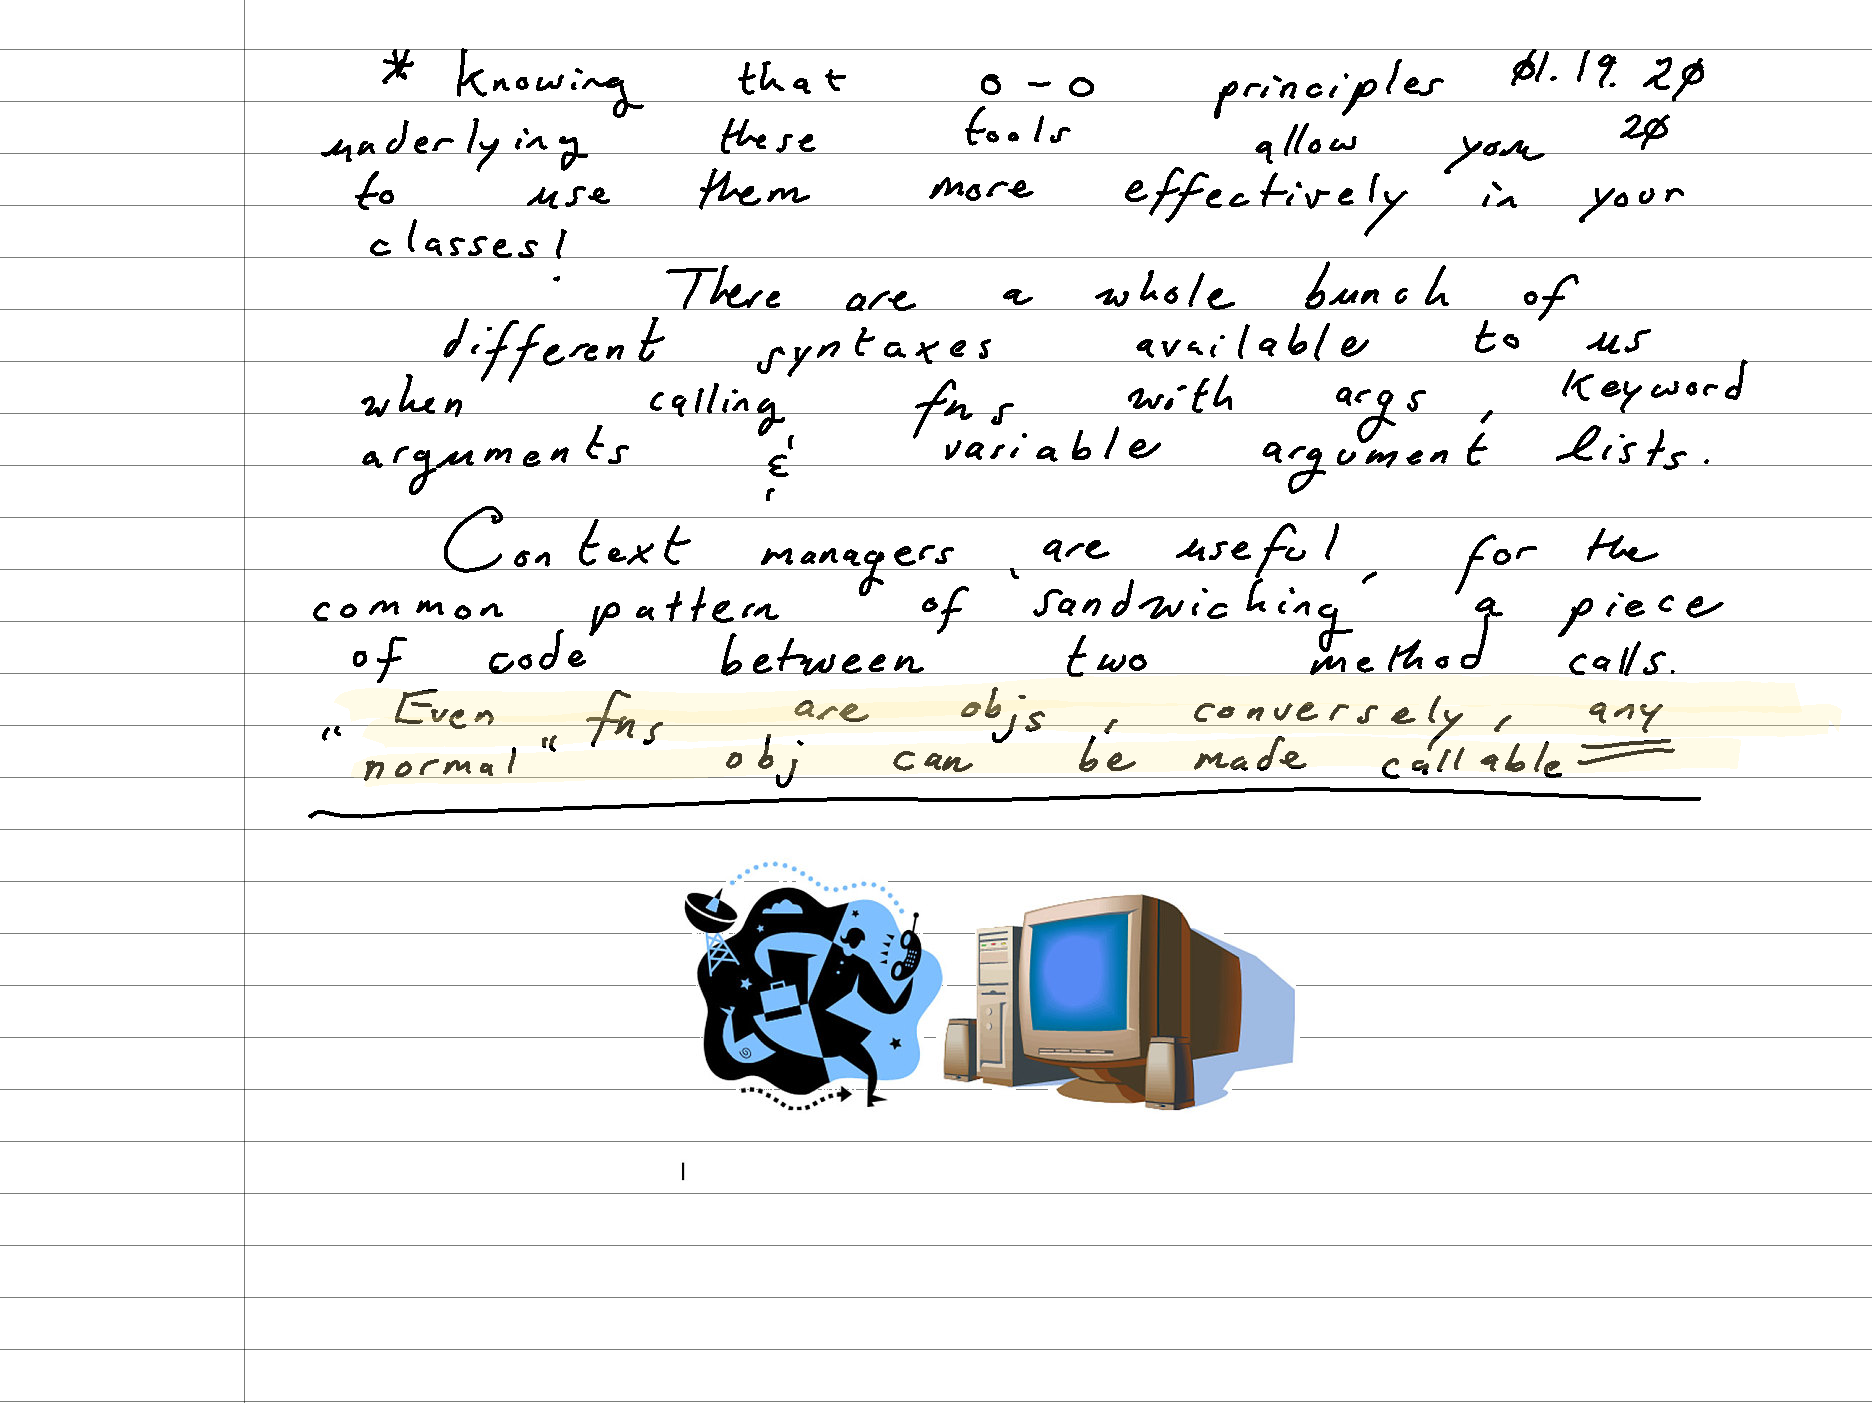 * Knowing that o-o principles 01.19.20
underlying these tools allow you 20
to use them more effectively in your
classes!
There are a whole bunch of
different syntaxes available to us
when calling fns with args, keyword
arguments & variable argument lists.
Context managers are useful for the
common pattern of 'sandwiching' a piece
of code between two method calls.
Even fns are objs, conversely, any
"normal" obj can be made callable